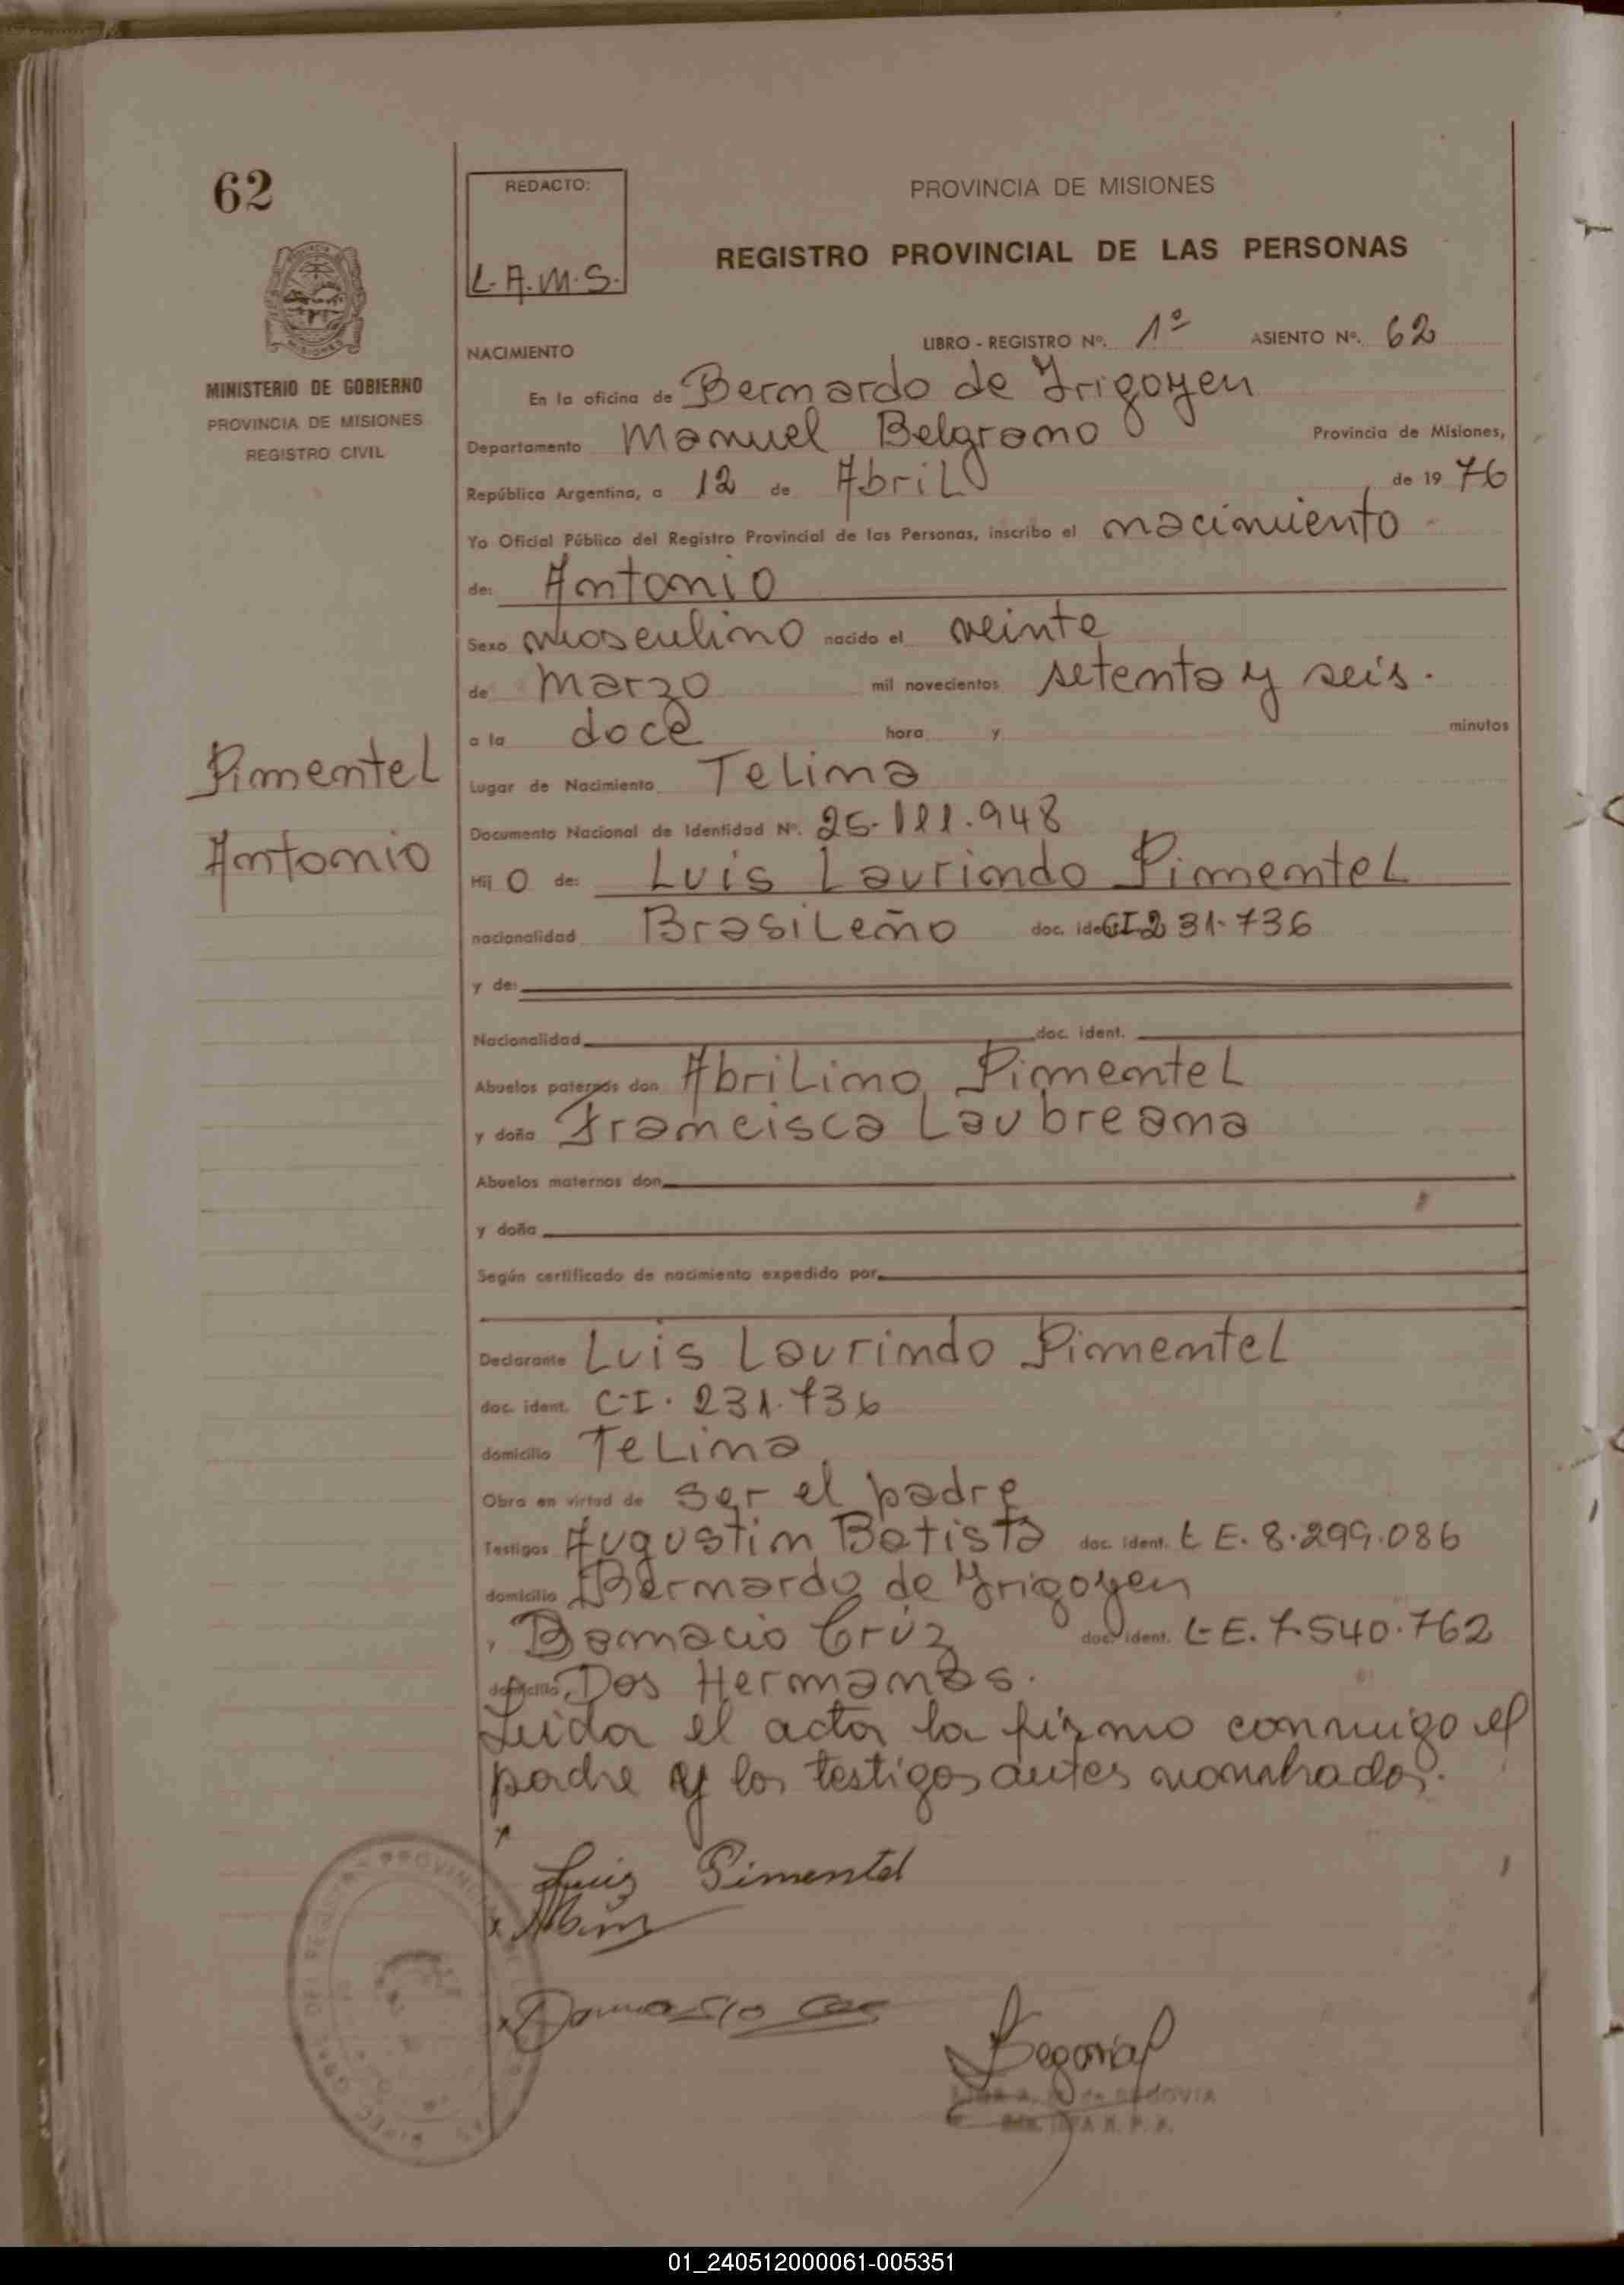 62
MINISTERIO DE GOBIERNO
PROVINCIA DE MISIONES
REGISTRO CIVIL
Pimentel
Antonio
REDACTO:
L.A.M.S.
PROVINCIA DE MISIONES
REGISTRO PROVINCIAL DE LAS PERSONAS
NACIMIENTO LIBRO - REGISTRO Nº. 1º ASIENTO Nº. 62
En la oficina de Bernardo de Yrigoyen
Departamento Manuel Belgrano Provincia de Misiones,
República Argentina, a 12 de Abril de 1976
Yo Oficial Público del Registro Provincial de las Personas, inscribo el nacimiento
de: Antonio
Sexo masculino nacido el veinte
de Marzo mil novecientos setenta y seis.
a la doce hora y minutos
Lugar de Nacimiento Telina
Documento Nacional de Identidad Nº. 25.111.948
Hij o de: Luis Laurindo Pimentel
nacionalidad Brasileño doc. ident. CI 231.736
y de:
Nacionalidad doc. ident.
Abuelos paternos don Abrilino Pimentel
y doña Francisca Laubreana
Abuelos maternos don
y doña
Según certificado de nacimiento expedido por
Declarante Luis Laurindo Pimentel
doc. ident. C.I. 231.736
domicilio Telina
Obra en virtud de ser el padre
Testigos Augustin Batista doc. ident. L E. 8.299.086
domicilio Bernardo de Yrigoyen
y Damacio Cruz doc. ident. L E. 7.540.762
domicilio Dos Hermanas.
Leida el acta la firma conmigo el
padre y los testigos antes nombrados.
Luis Pimentel
Damasio
Segovia
de SEGOVIA